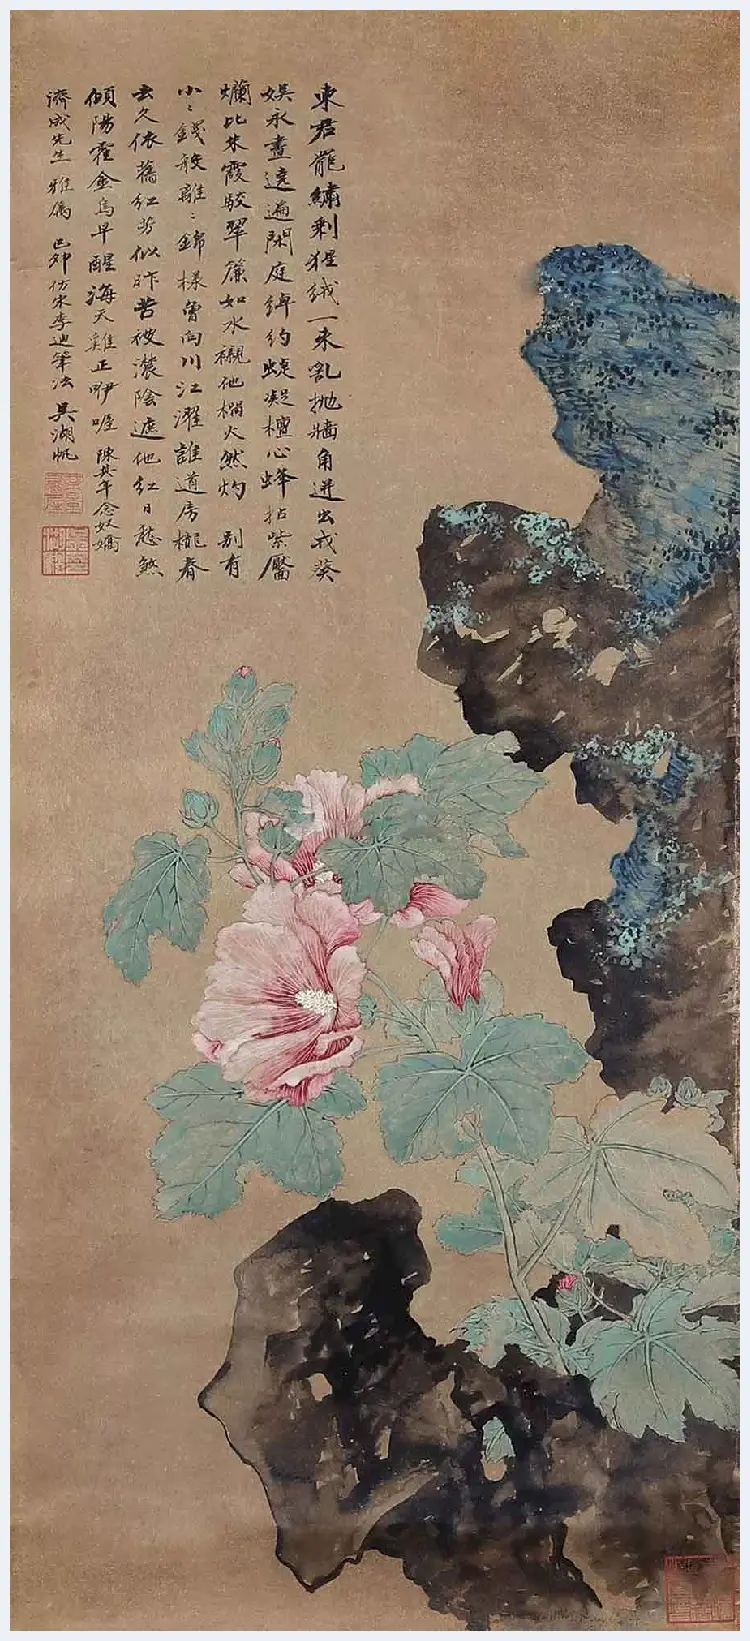 東君罷繡剩猩絨一朵亂拋牆角迸出戎葵
娛永晝遶遍閑庭綽約蜨凝檀心蜂拈紫靨
爛比朱霞駮翠簾如水襯他榴火然灼 別有
小〻錢般離〻錦樣曾向川江濯誰道房櫳春
去久依舊紅芳似昨昔被濃陰遮他紅日愁煞
傾陽霍金烏早醒海天雞正咿喔 陳其年念奴嬌
濟成先生雅屬 己卯仿宋李迪筆法 吳湖帆